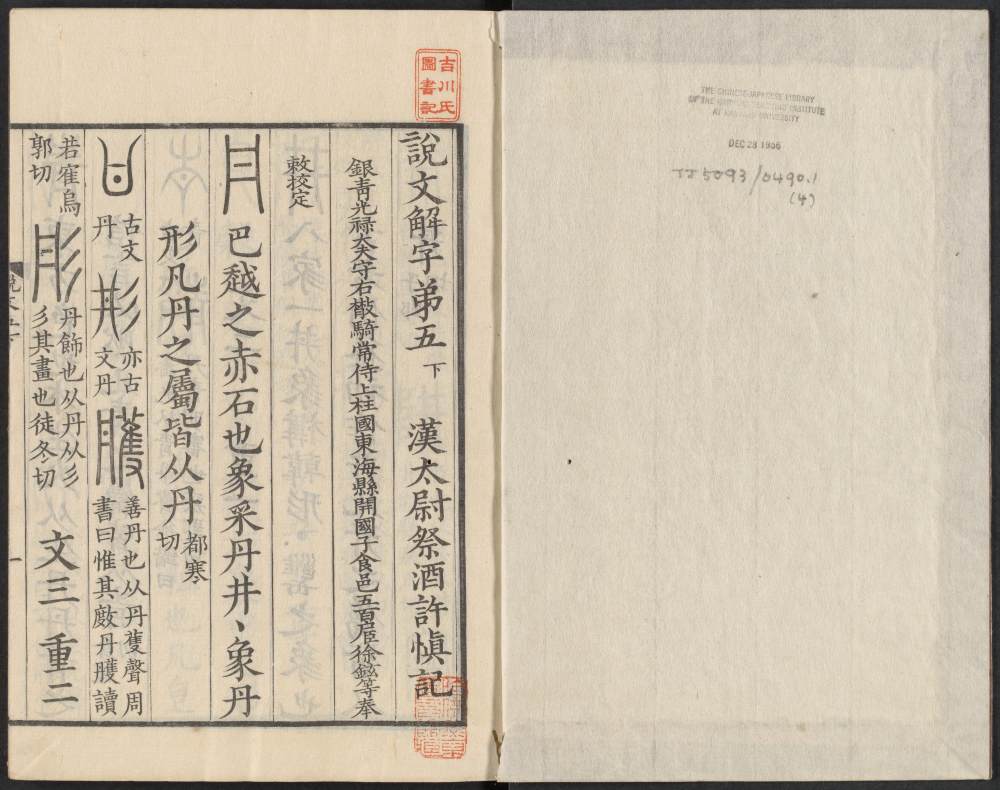 THE CHINESE-JAPANESE LIBRARY
OF THE HARVARD-YENCHING INSTITUTE
AT HARVARD UNIVERSITY
DEC 28 1956
5093/0490.1
(4)
吉川氏
圖書記
說文解字弟五 下 漢太尉祭酒許愼記
銀靑光祿大夫守右散騎常侍上柱國東海縣開國子食邑五百戶臣徐鉉等奉
敕校定
丹 巴越之赤石也象采丹井丶象丹
形凡丹之屬皆从丹 都寒
切
古文
丹
亦古
文丹
雘 善丹也从丹蒦聲周
書曰惟其敿丹雘讀
若霍烏
郭切
彤 丹飾也从丹从彡
彡其畫也徒冬切
文三 重二
一